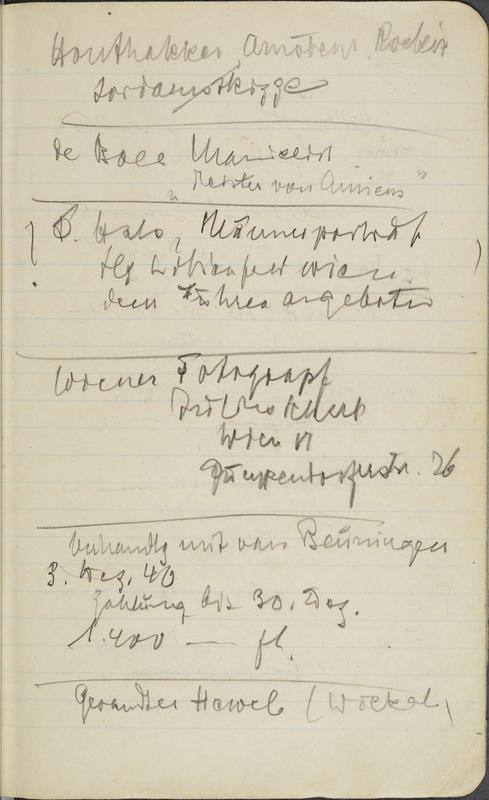 Houthakker, Amsterd. Rockin
Jordaensskizze
de Boer Manierist
"Meister von Amiens"
F. Hals, Männerporträt
Slg Wien
dem Führer angeboten
Wiener Fotograph
Julius Scherb
Wien VI
Gumpendorferstr. 26
Verhandlg mit van Beuningen
3. Dez. 40
Zahlung bis 30. Dez.
1.400 — fl.
Gesandter Hewel